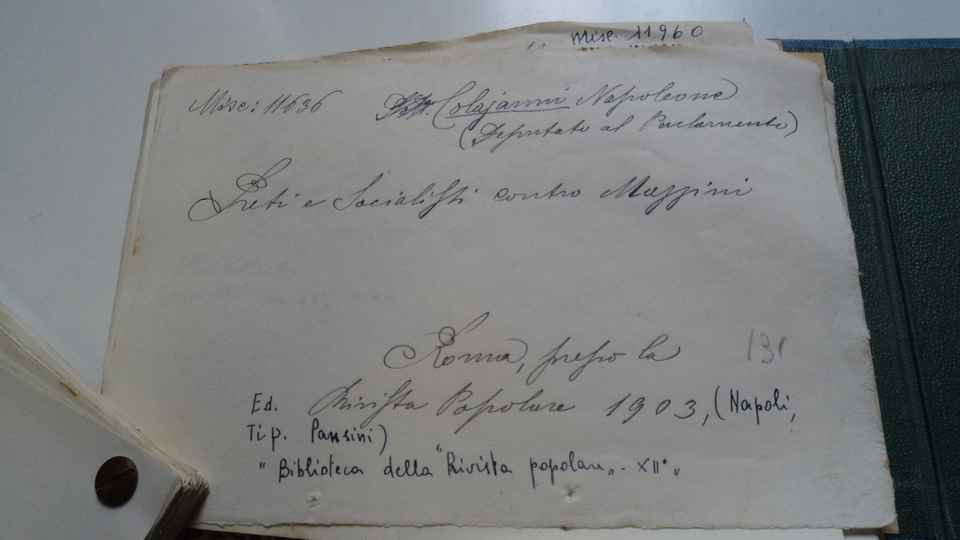 misc. 11960
Misc: 11636 Dott. Colajanni Napoleone
(Deputato al Parlamento)
Preti e Socialisti contro Mazzini
Roma, presso la
131
Ed. Rivista Popolare 1903, (Napoli,
Tip. Pansini)
"Biblioteca della "Rivista popolare„ - XII°„